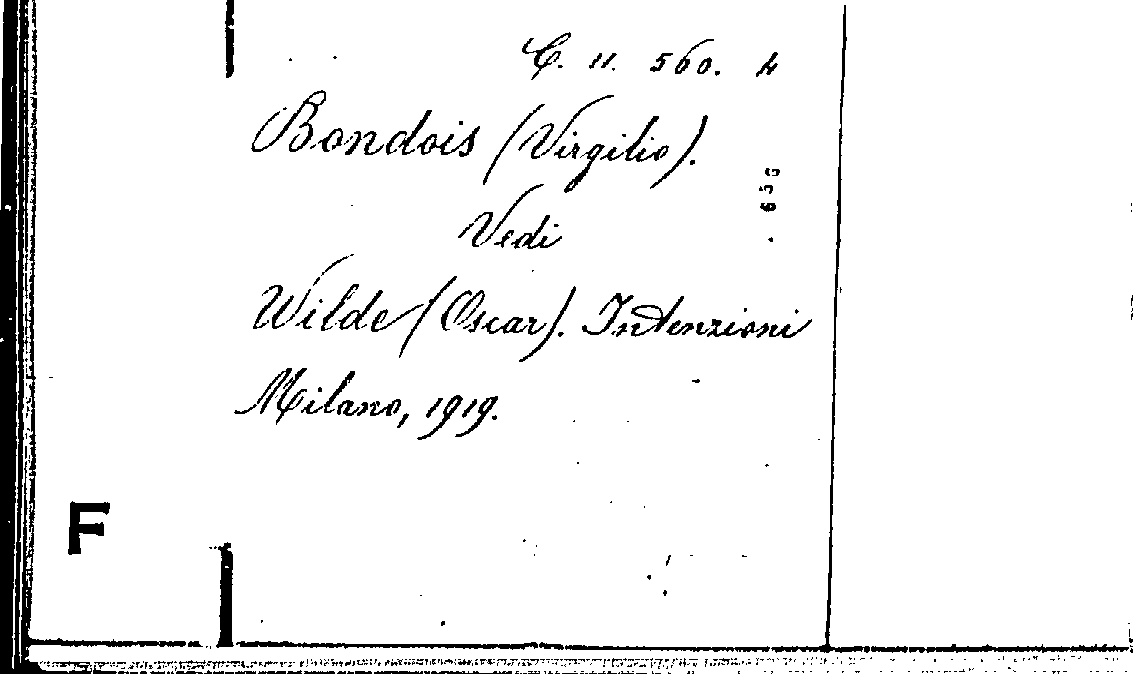 C. 11. 560. 4
Bondois (Virgilio).
Vedi
Wilde (Oscar). Intenzioni
Milano, 1919.
F